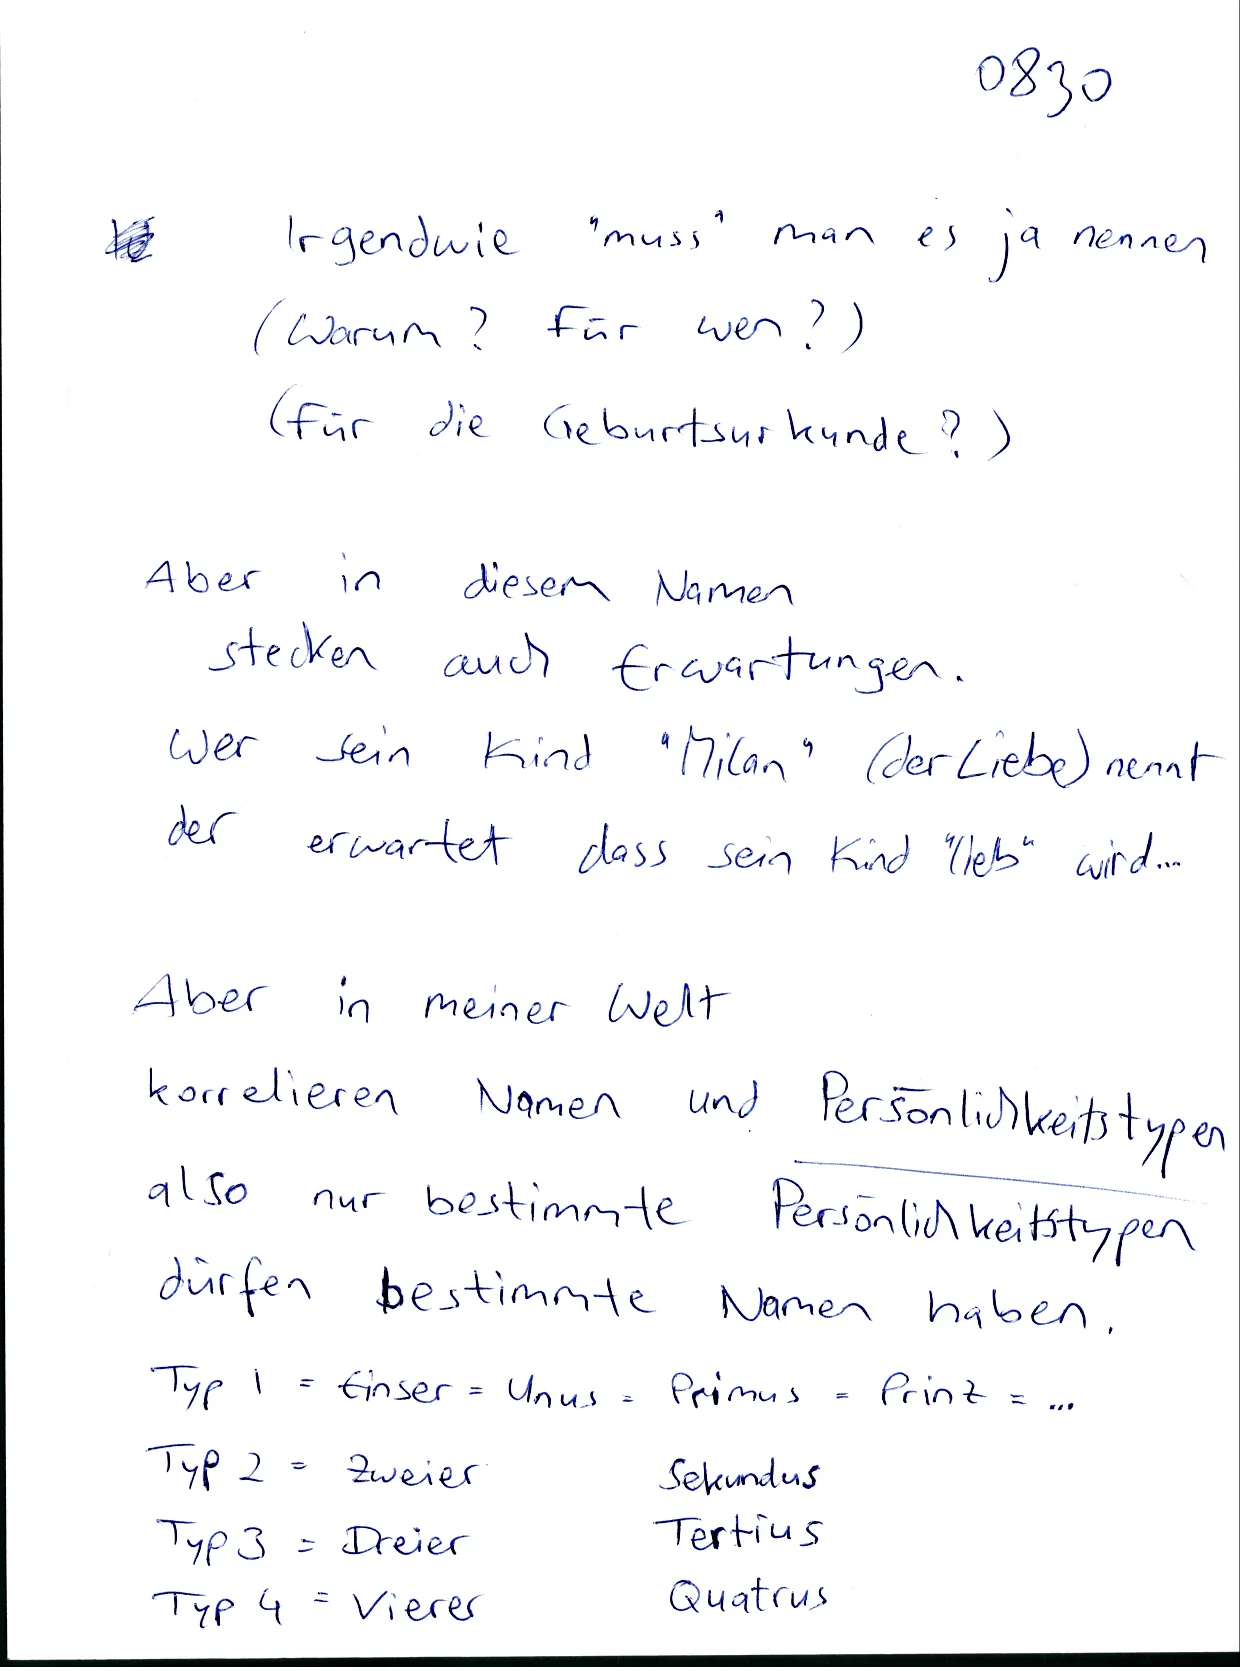 0830
Irgendwie "muss" man es ja nennen
(Warum? Für wen?)
(Für die Geburtsurkunde?)
Aber in diesem Namen
stecken auch Erwartungen.
Wer sein Kind "Milan" (der Liebe) nennt
der erwartet dass sein Kind "lieb" wird...
Aber in meiner Welt
korrelieren Namen und Persönlichkeitstypen
also nur bestimmte Persönlichkeitstypen
dürfen bestimmte Namen haben.
Typ 1 = Einser = Unus = Primus = Prinz = ...
Typ 2 = Zweier Sekundus
Typ 3 = Dreier Tertius
Typ 4 = Vierer Quatrus